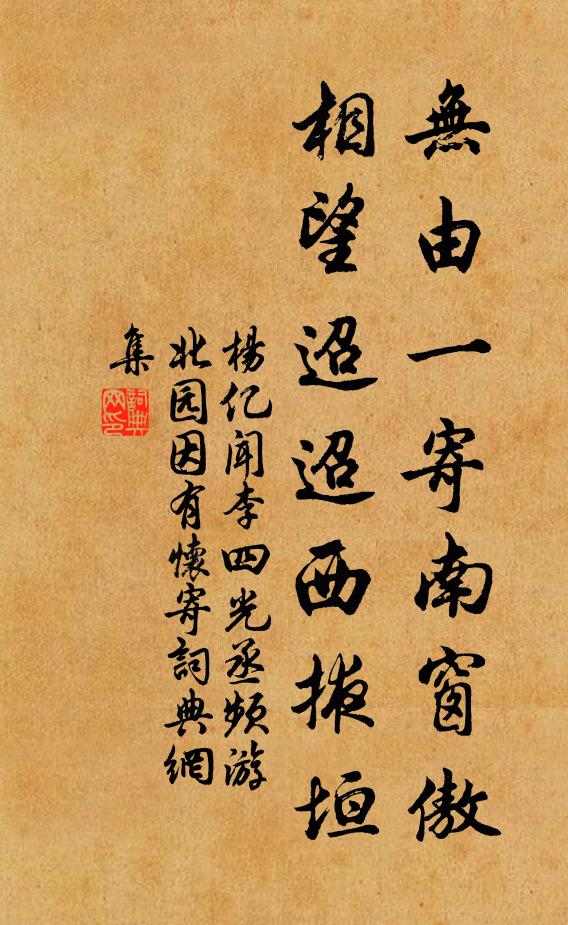 無由一寄南窗傲
相望迢迢西掖垣
楊亿闻李四光丞频游
北园因有懷寄詞典網
集
詞典
网印